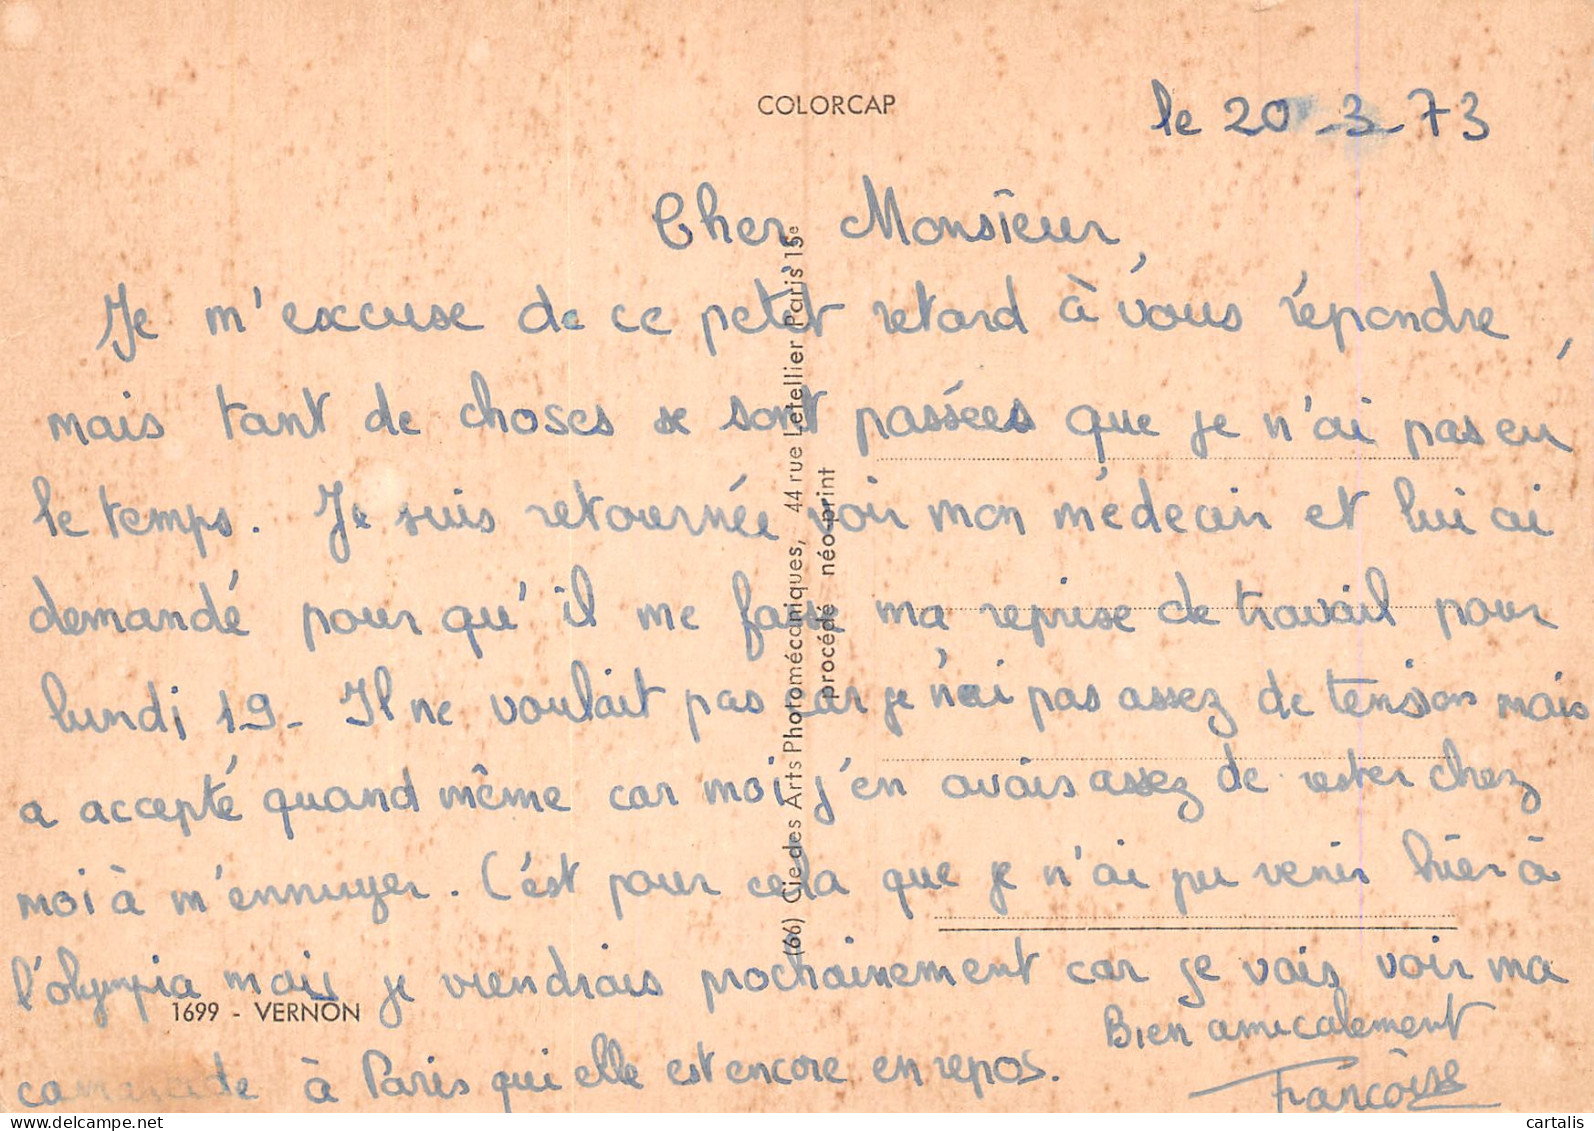 COLORCAP
le 20-3-73
Cher Monsieur,
Je m'excuse de ce petit retard à vous répondre,
mais tant de choses se sont passées que je n'ai pas eu
le temps. Je suis retournée voir mon médecin et lui ai
demandé pour qu'il me fasse ma reprise de travail pour
lundi 19- Il ne voulait pas car je n'ai pas assez de tension mais
a accepté quand même car moi j'en avais assez de rester chez
moi à m'ennuyer. C'est pour cela que je n'ai pu venir hier à
l'olympia mais je viendrais prochainement car je vais voir ma
camarade à Paris qui elle est encore en repos.
Bien amicalement
Françoise
1699 - VERNON
(66) Cie des Arts Photomécaniques, 44 rue Letellier Paris 15e
procédé néo-print
cartalis